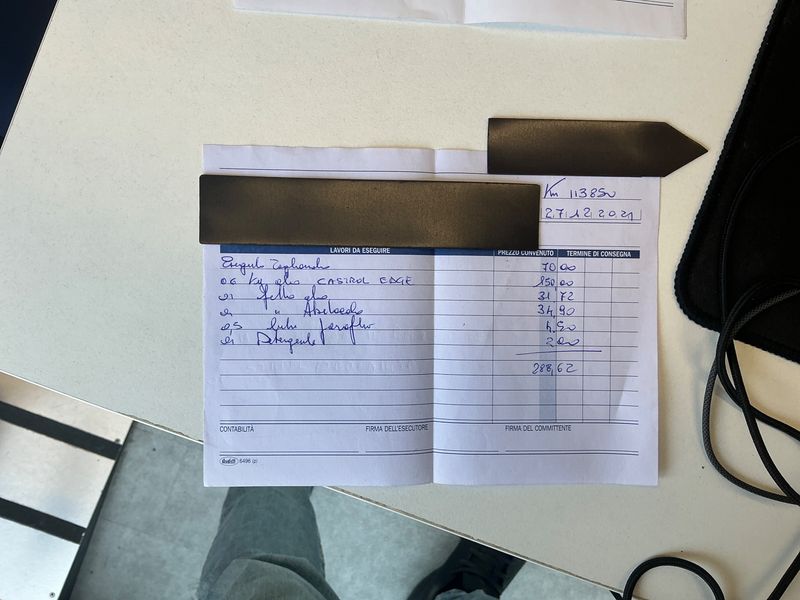 Km 113850
27 12 2021
LAVORI DA ESEGUIRE PREZZO CONVENUTO TERMINE DI CONSEGNA
Eseguito Tagliando 70,00
06 Kg olio CASTROL EDGE 150,00
01 filtro olio 31,72
01 " Abitacolo 34,90
0,5 paraflu
01 Detergente 2,00
288,62
CONTABILITÀ FIRMA DELL'ESECUTORE FIRMA DEL COMMITTENTE
6496 (2)